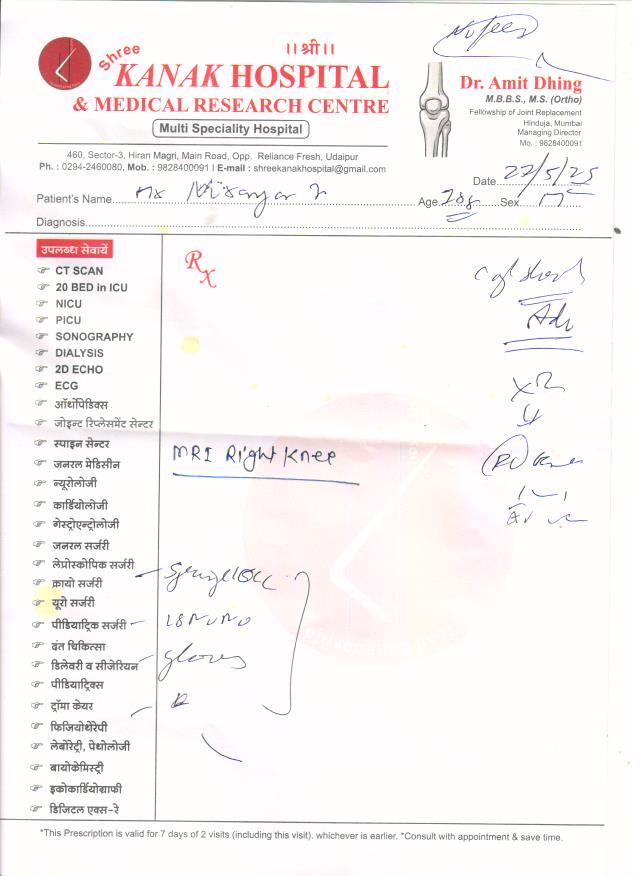 No fees
Shree
।। श्री ।।
KANAK HOSPITAL
& MEDICAL RESEARCH CENTRE
Multi Speciality Hospital
460, Sector-3, Hiran Magri, Main Road, Opp. Reliance Fresh, Udaipur
Ph. : 0294-2460080, Mob. : 9828400091 | E-mail : shreekanakhospital@gmail.com
Dr. Amit Dhing
M.B.B.S., M.S. (Ortho)
Fellowship of Joint Replacement
Hinduja, Mumbai
Managing Director
Mo. : 9828400091
Date 22/5/25
Patient's Name
Age Sex M
Diagnosis
उपलब्ध सेवायें
CT SCAN
20 BED in ICU
NICU
PICU
SONOGRAPHY
DIALYSIS
2D ECHO
ECG
ऑर्थोपेडिक्स
जोइन्ट रिप्लेसमेंट सेन्टर
स्पाइन सेन्टर
जनरल मेडिसीन
न्यूरोलोजी
कार्डियोलोजी
गेस्ट्रोएन्ट्रोलोजी
जनरल सर्जरी
लेप्रोस्कोपिक सर्जरी
क्रायो सर्जरी
यूरो सर्जरी
पीडियाट्रिक सर्जरी
दंत चिकित्सा
डिलेवरी व सीजेरियन
पीडियाट्रिक्स
ट्रॉमा केयर
फिजियोथेरेपी
लेबोरेट्री, पेथोलोजी
बायोकेमिस्ट्री
इकोकार्डियोग्राफी
डिजिटल एक्स-रे
Rx
Adv
MRI Right Knee
gloves
rejuvenating lives
*This Prescription is valid for 7 days of 2 visits (including this visit). whichever is earlier. *Consult with appointment & save time.